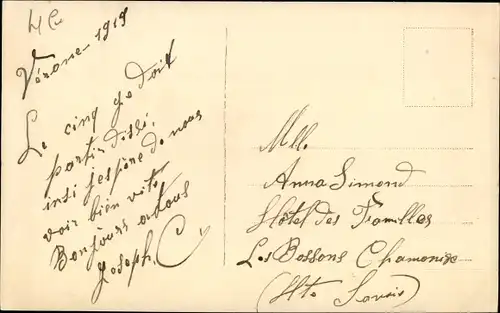 Vérone - 1919
Le cinq je doit
partir d'ici.
insi j'espère de nous
voir bien vite
Bonjours a tous
Joseph. C
Mll.
Anna Simond
Hôtel des Familles
Les Bossons Chamonix
(Hte Savoie)